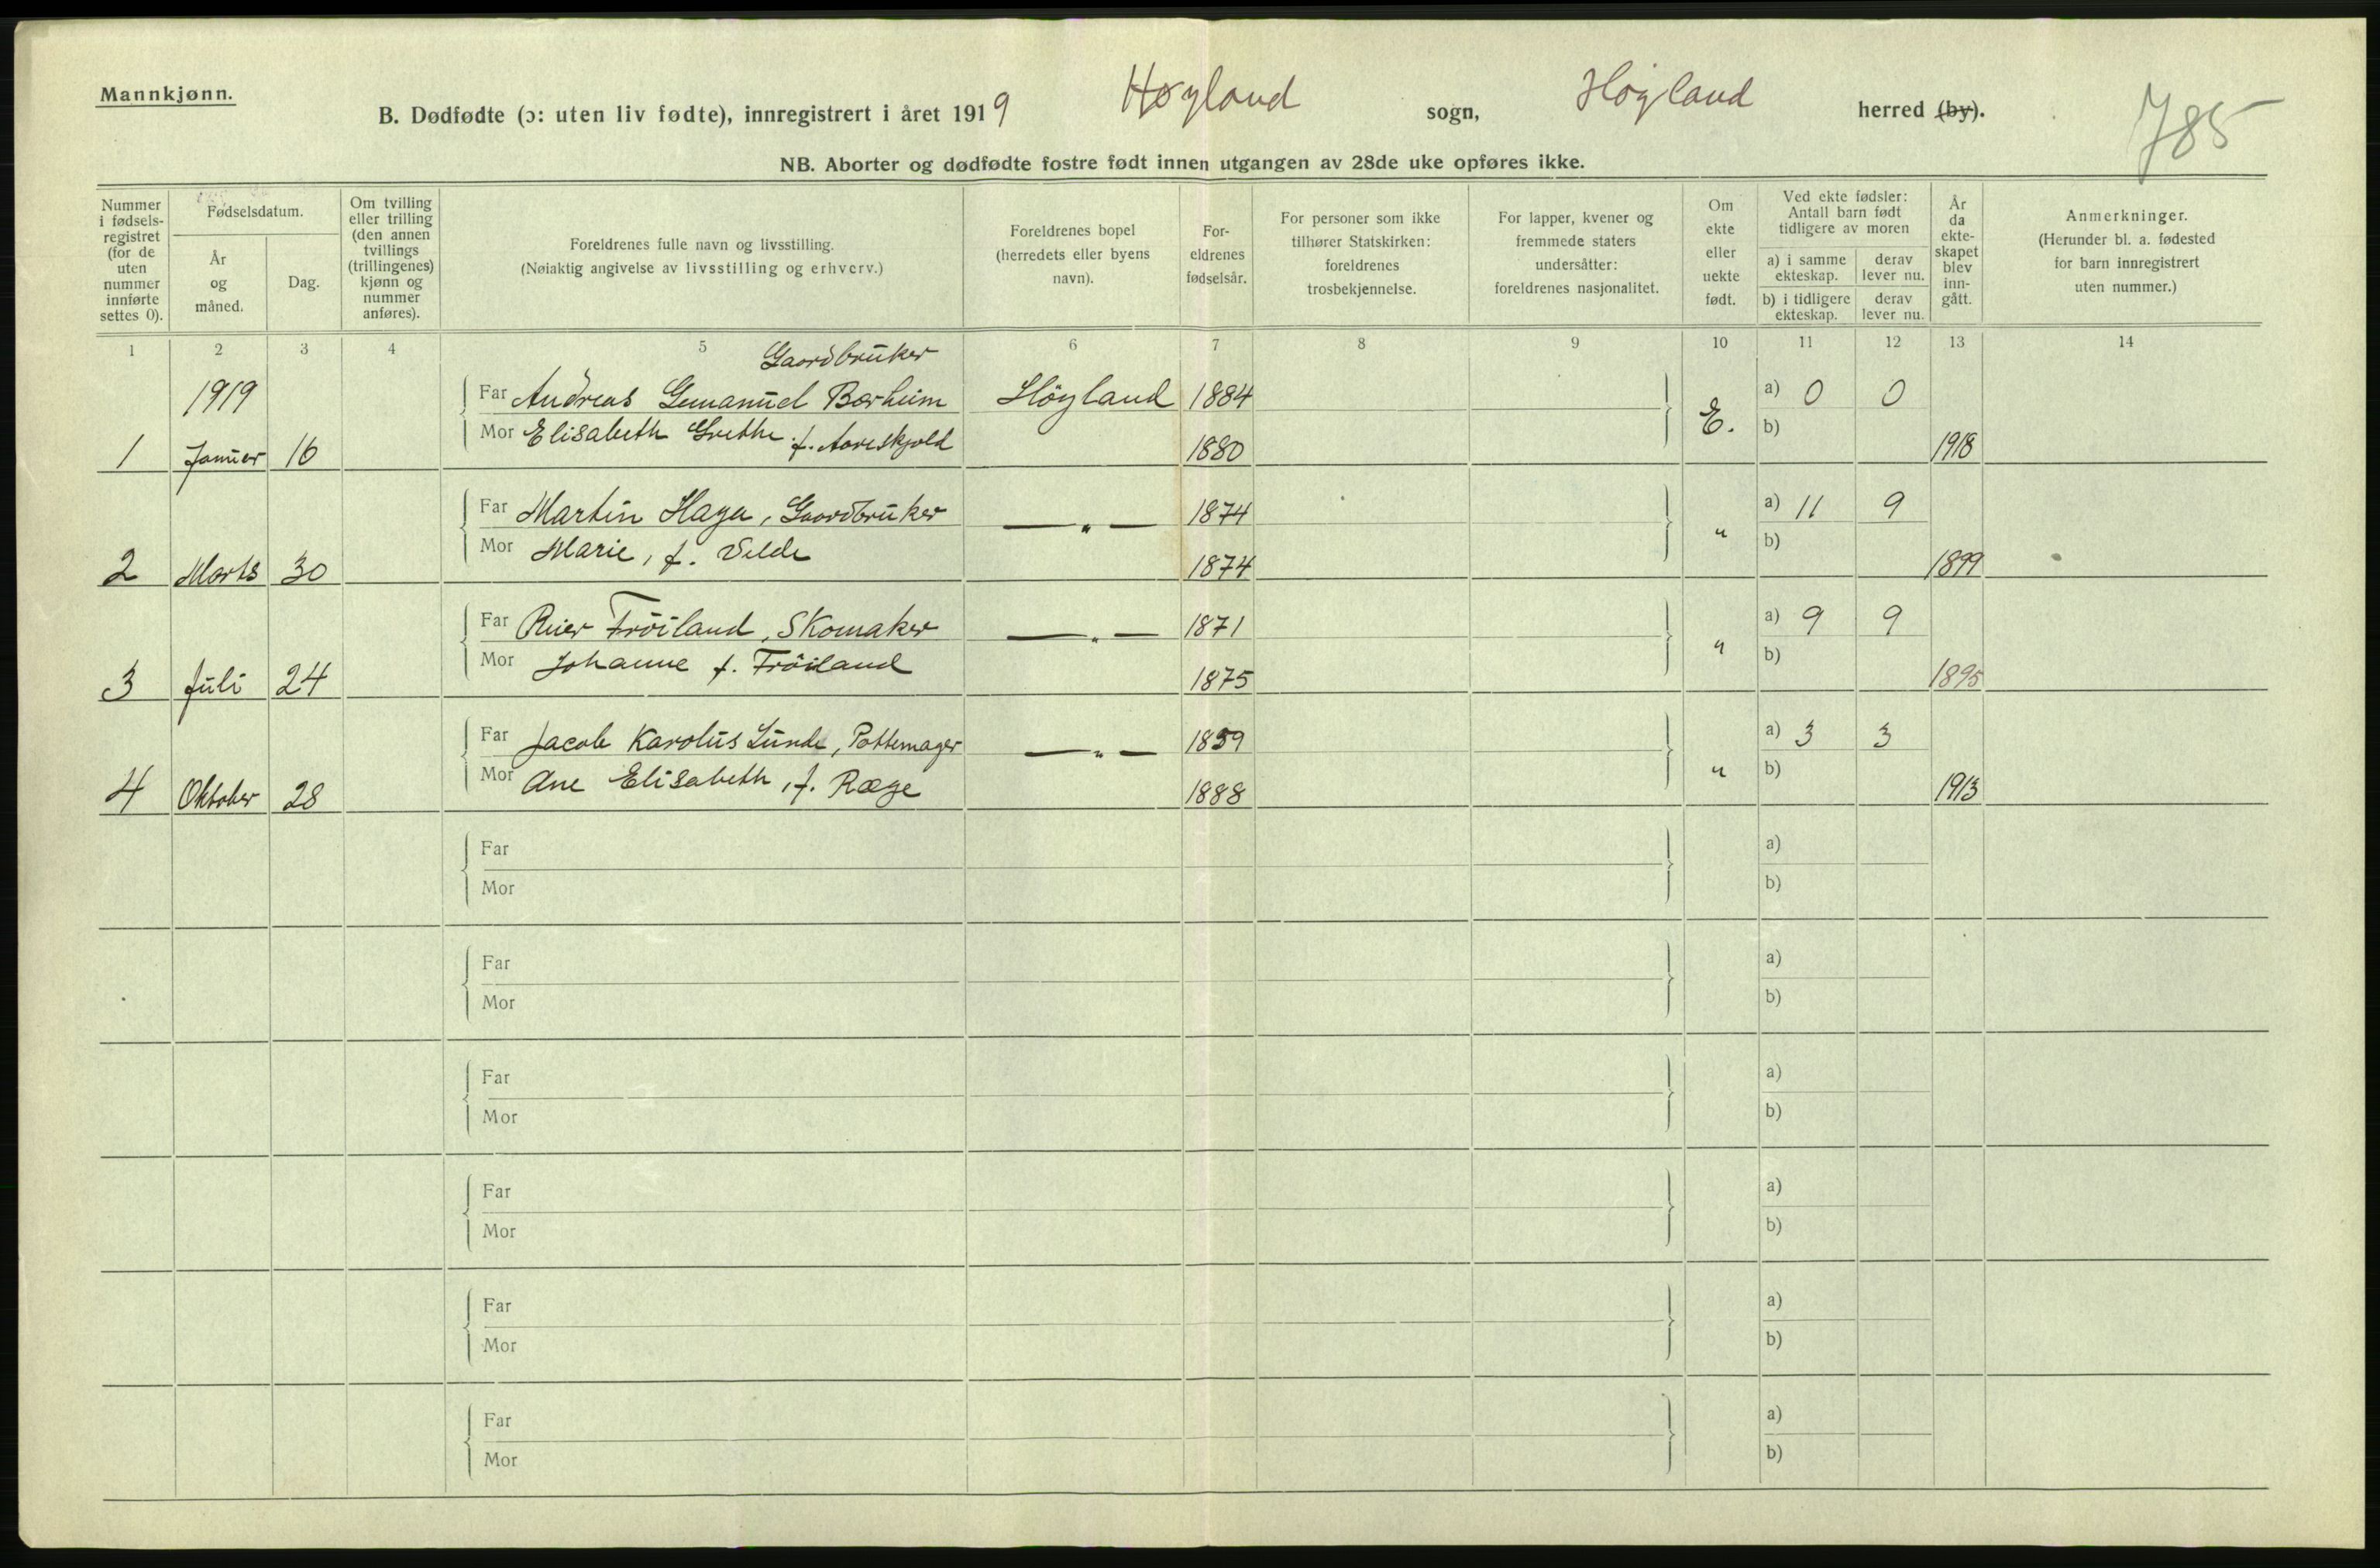 Mannkjønn.
B. Dødfødte (ɔ: uten liv fødte), innregistrert i året 1919 Høyland sogn, Höyland herred (by).
785
NB. Aborter og dødfødte fostre født innen utgangen av 28de uke opføres ikke.
Nummer i fødsels-registret (for de uten nummer innførte settes 0).
Fødselsdatum.
År og måned.
Dag.
Om tvilling eller trilling (den annen tvillings (trillingenes) kjønn og nummer anføres).
Foreldrenes fulle navn og livsstilling.
(Nøiaktig angivelse av livsstilling og erhverv.)
Foreldrenes bopel (herredets eller byens navn).
For-eldrenes fødselsår.
For personer som ikke tilhører Statskirken: foreldrenes trosbekjennelse.
For lapper, kvener og fremmede staters undersåtter: foreldrenes nasjonalitet.
Om ekte eller uekte født.
Ved ekte fødsler: Antall barn født tidligere av moren
a) i samme ekteskap.
derav lever nu.
b) i tidligere ekteskap.
derav lever nu.
År da ekte-skapet blev inn-gått.
Anmerkninger.
(Herunder bl. a. fødested for barn innregistrert uten nummer.)
1 2 3 4 5 6 7 8 9 10 11 12 13 14
Gaardbrüker
1919 Far Andreas Emanüel Borheim Höyland 1884 E. a) 0 0
1 Janüar 16 Mor Elisabeth Grethe f. Aareskjold 1880 b) 1918
Far Martin Haga, Gaardbrüker —"— 1874 " a) 11 9
2 Marts 30 Mor Marie, f. Velde 1874 b) 1899
Far Reier Fröiland, Skomaker —"— 1871 " a) 9 9
3 Jüli 24 Mor Johanne f. Fröiland 1875 b) 1895
Far Jacob Karolüs Lünde, Pottemager —"— 1889 " a) 3 3
4 Oktober 28 Mor Ane Elisabeth, f. Ræge 1888 b) 1913
Far a)
Mor b)
Far a)
Mor b)
Far a)
Mor b)
Far a)
Mor b)
Far a)
Mor b)
Far a)
Mor b)